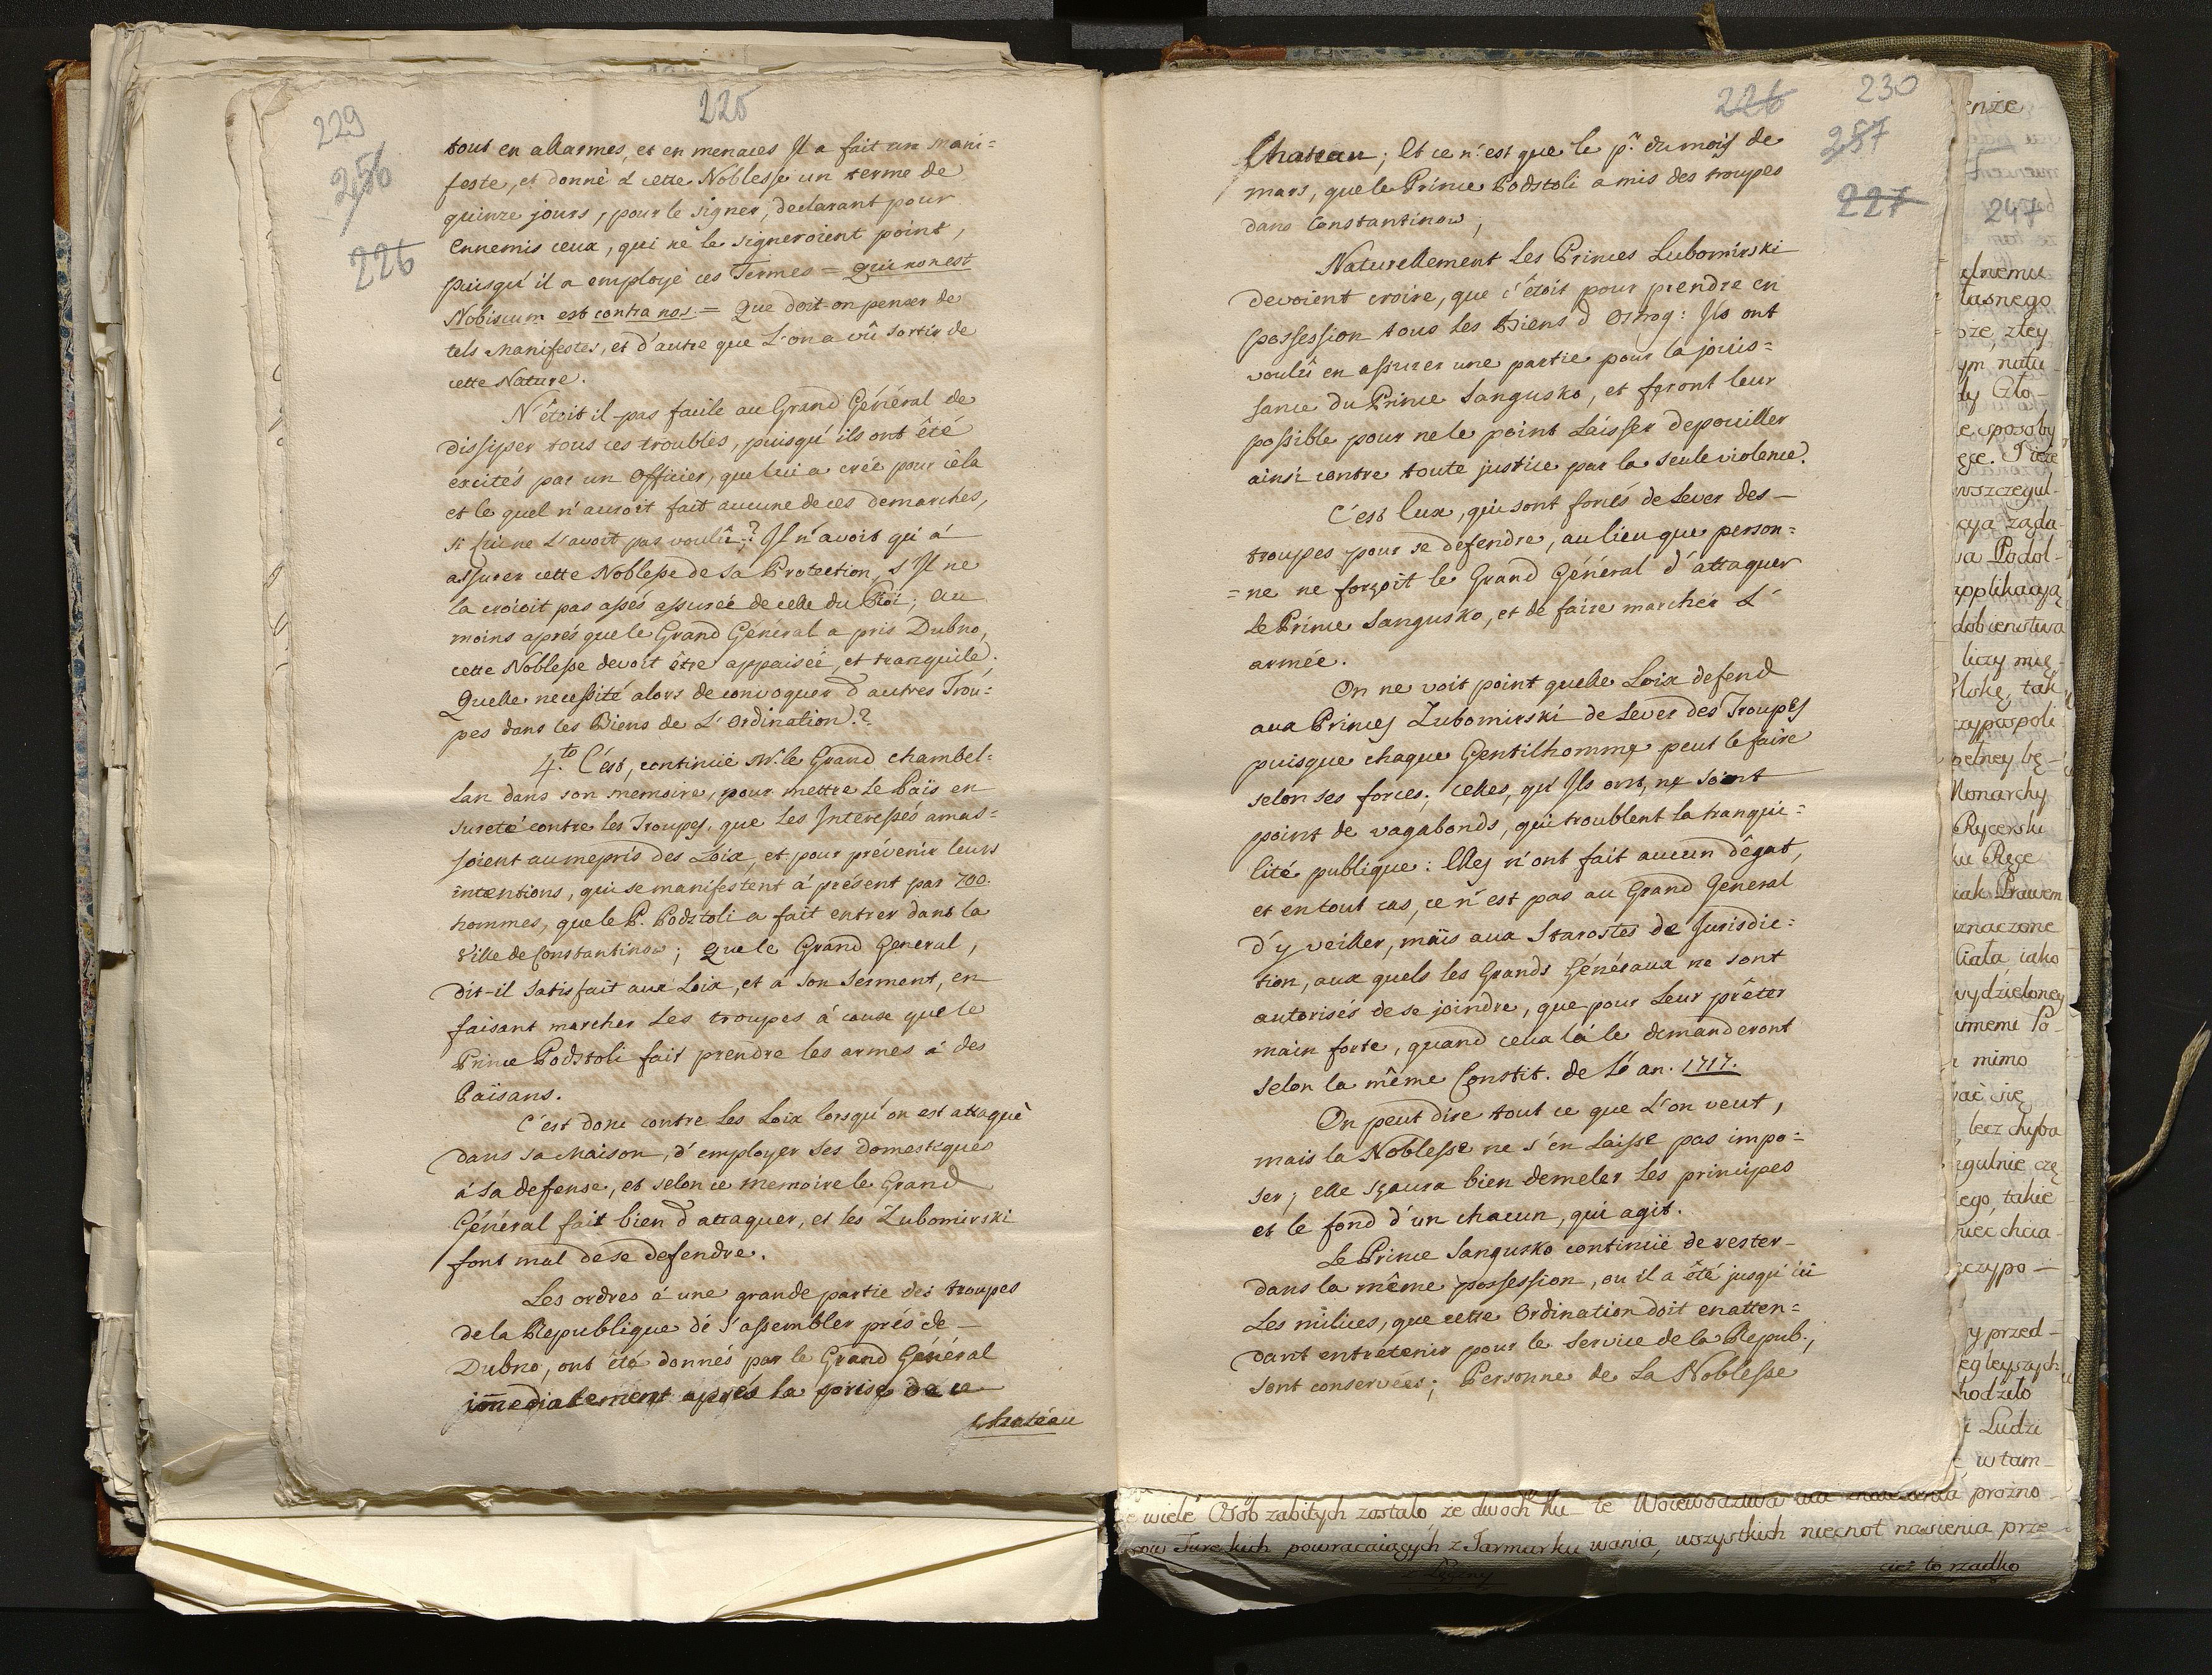 229
225
256
226
tout en allarmes, et en menaces Il a fait un Mani=
feste, et donné à cette Noblesse un terme de
quinze jours, pour le signer, declarant pour
Ennemis ceux, qui ne le signeroient point,
puisqu'il a employé ces Termes = Qui non est
Nobiscum est contra nos. = Que doit-on penser de
tels Manifestes, et d'autre que L'on a vû sortir de
cette Nature.
N'étoit il pas facile au Grand Général de
dissiper tous ces troubles, puisqu'ils ont été
excités par un Officier, que lui a créé pour cela
et le quel n'auroit fait aucune de ces demarches,
si lui ne l'avoit pas voulû;? Il n'avoit qu'à
assurer cette Noblesse de sa Protection, s'Il ne
la croioit pas assés assurée de celle du Roi; Au
moins aprés que le Grand Général a pris Dubno,
cette Noblesse devoit être appaisée, et tranquile.
Quelle necessité alors de convoquer d'autres Trou=
pes dans les Biens de L'Ordination.?
4.to C'est, continuë Mr. le Grand Chambel=
lan dans son memoire, pour mettre le Païs en
sureté contre les Troupes, que les Interessés amas=
soient au mepris des Loix, et pour prévenir leurs
intentions, qui se manifestent à présent par 700.
hommes, que le P. Podstoli a fait entrer dans la
Ville de Constantinow; Que le Grand General,
dit-il satisfait aux Loix, et à son Serment, en
faisant marcher les troupes à cause que le
Prince Podstoli fait prendre les armes à des
Païsans.
C'est donc contre les Loix lorsqu'on est attaqué
dans sa Maison, d'employer ses domestiques
à sa defense, et selon ce memoire le Grand
Général fait bien d'attaquer, et les Lubomirski
font mal de se defendre.
Les ordres à une grande partie des troupes
de la Republique de s'assembler prés de
Dubno, ont été donnés par le Grand Général
immediatement aprés la prise de ce
Chateau
226
230
257
227
Chateau; Et ce n'est que le pr. du mois de
mars, que le Prince Podstoli a mis des troupes
dans Constantinow;
Naturellement Les Princes Lubomirski
devoient croire, que c'étoit pour prendre en
possession tous les Biens d'Ostrog: Ils ont
voulû en assurer une partie pour la joüis=
sance du Prince Sangusko, et feront leur
possible pour ne le point laisser depouiller
ainsi contre toute justice par la seule violence.
C'est Eux, qui sont forcés de Lever des
troupes pour se defendre, au lieu que person=
=ne ne forçoit le Grand Général d'attaquer
Le Prince Sangusko, et de faire marcher L'
armée.
On ne voit point quelle Loix defend
aux Princes Lubomirski de Lever des Troupes
puisque chaque Gentilhomme peut le faire
selon ses forces; celles, qu'Ils ont, ne sont
point de vagabonds, qui troublent la tranqui=
lité publique: Elles n'ont fait aucun dêgat,
et en tout cas, ce n'est pas au Grand General
d'y veiller, mais aux Starostes de Jurisdic=
tion, aux quels les Grands Généraux ne sont
autorisés de se joindre, que pour Leur prêter
main forte, quand ceux là le demanderont
selon la même Constit. de L'an. 1717.
On peut dire tout ce que L'on veut,
mais la Noblesse ne s'en Laisse pas impo=
ser; elle sçaura bien demeler les principes
et le fond d'un chacun, qui agit.
Le Prince Sangusko continuë de rester
dans la même possession, ou il a été jusqu'ici
Les milices, que cette Ordination doit en atten=
dant entretenir pour le service de la Repub.,
sont conservées; Personne de La Noblesse
247
wiele Osob zabitych zostało ze dwoch
powracaiących z Jarmarku wania, wszystkich niecnot nasienia prze
cież to rzadko
Podol-
liczy mię-
Monarchy
Rycersku
iak Prawem
znaczone
Ciała iako
wydzieloney
mimo
lecz chyba
y przed-
i Ludzi
w tam-
prozno